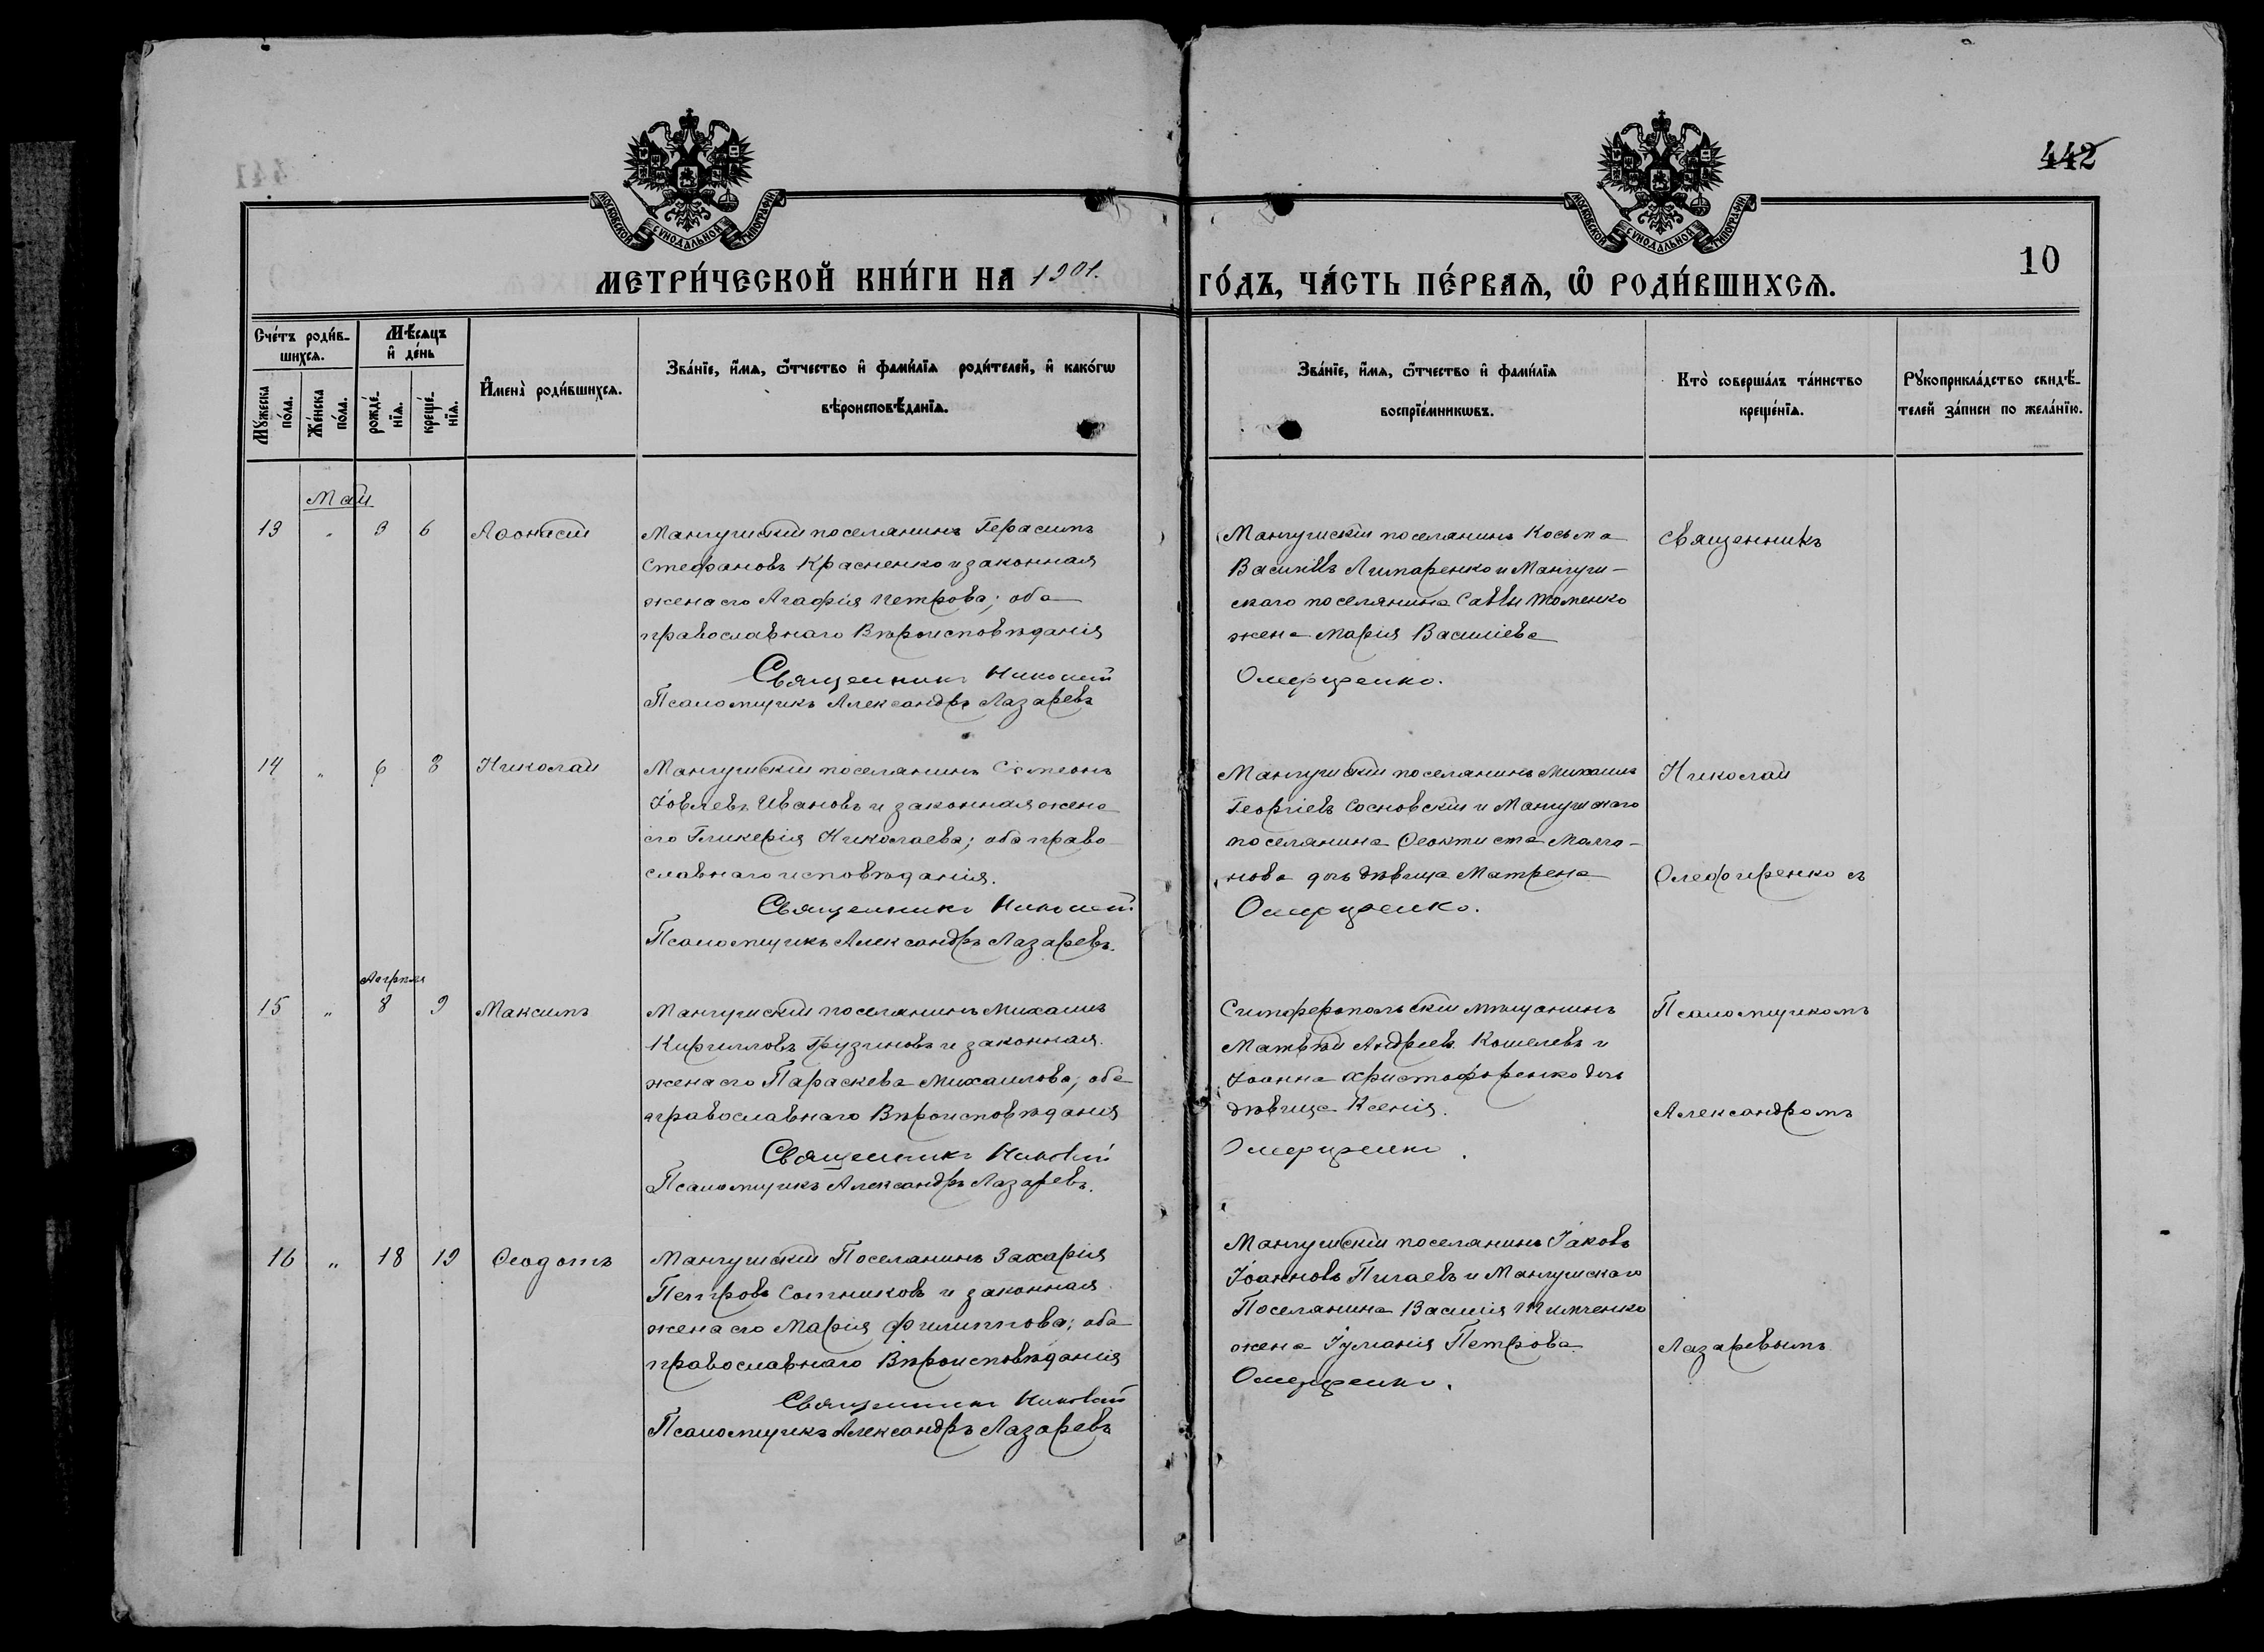 442
МОСКОВСКОЙ СѴНОДАЛЬНОЙ ТИПОГРАФІИ
МОСКОВСКОЙ СѴНОДАЛЬНОЙ ТИПОГРАФІИ
10
МЕТРИ́ЧЕСКОЙ КНИ́ГИ НА 1901. ГО́ДЪ, ЧА́СТЬ ПЕ́РВАѦ, Ѽ РОДИ́ВШИХСѦ.
Сче́тъ роди́в-
шихсѧ.
Мѣ́сѧцъ
и҆ де́нь
Мꙋ́жеска по́ла.
Же́нска по́ла.
рожде́-нїѧ.
креще́-нїѧ.
И҆мена̀ роди́вшихсѧ.
Зва́нїе, и҆́мѧ, ѻ҆́тчество и҆ фами́лїѧ роди́телей, и҆ како́гѡ
вѣроисповѣ́данїѧ.
Зва́нїе, и҆́мѧ, ѻ҆́тчество и҆ фами́лїѧ
воспрїе́мникѡвъ.
Кто̀ соверша́лъ та́инство
креще́нїѧ.
Рꙋкоприкла́дство свидѣ́-
телей за́писи по жела́нїю.
Май
13 " 3 6 Аѳонасій
Мангушскій поселянинъ Герасимъ
Стефановъ Красненко и законная
жена его Агафія Петрова; оба
православнаго Вѣроисповѣданія
Священникъ Николай
Псаломщикъ Александръ Лазаревъ
Мангушскій поселянинъ Косьма
Василіевъ Литаренко и Мангуш-
скаго поселянина Саввы Томенко
жена Марія Василіева
Олефиренко.
Священникъ
14 " 6 8 Николай
Мангушскій поселянинъ Сѵмеонъ
Іовлевъ Ивановъ и законная жена
его Гликерія Николаева; оба право-
славнаго исповѣданія.
Священникъ Николай
Псаломщикъ Александръ Лазаревъ.
Мангушскій поселянинъ Михаилъ
Георгіевъ Сосновскій и Мангушскаго
поселянина Ѳеоктиста
дочь дѣвица Матрена
Олефиренко.
Николай
Олефиренко съ
Апрѣля
15 " 8 9 Максимъ
Мангушскій поселянинъ Михаилъ
Кирилловъ Грузиновъ и законная
жена его Параскева Михаилова; оба
православнаго Вѣроисповѣданія
Священникъ Николай
Псаломщикъ Александръ Лазаревъ.
Симферопольскій мѣщанинъ
Матвѣй Андреевъ Кошелевъ и
Іоанна Христофоренко дочь
дѣвица Ксенія.
Олефиренко.
Псаломщикомъ
Александромъ
16 " 18 19 Ѳеодотъ
Мангушскій Поселянинъ Захарія
Петровъ Сотниковъ и законная
жена его Марія Филиппова; оба
православнаго Вѣроисповѣданія
Священникъ Николай
Псаломщикъ Александръ Лазаревъ
Мангушскій поселянинъ Іаковъ
Іоанновъ Пигаевъ и Мангушскаго
Поселянина Василія Тимченко
жена Іуліанія Петрова
Олефиренко.
Лазаревымъ